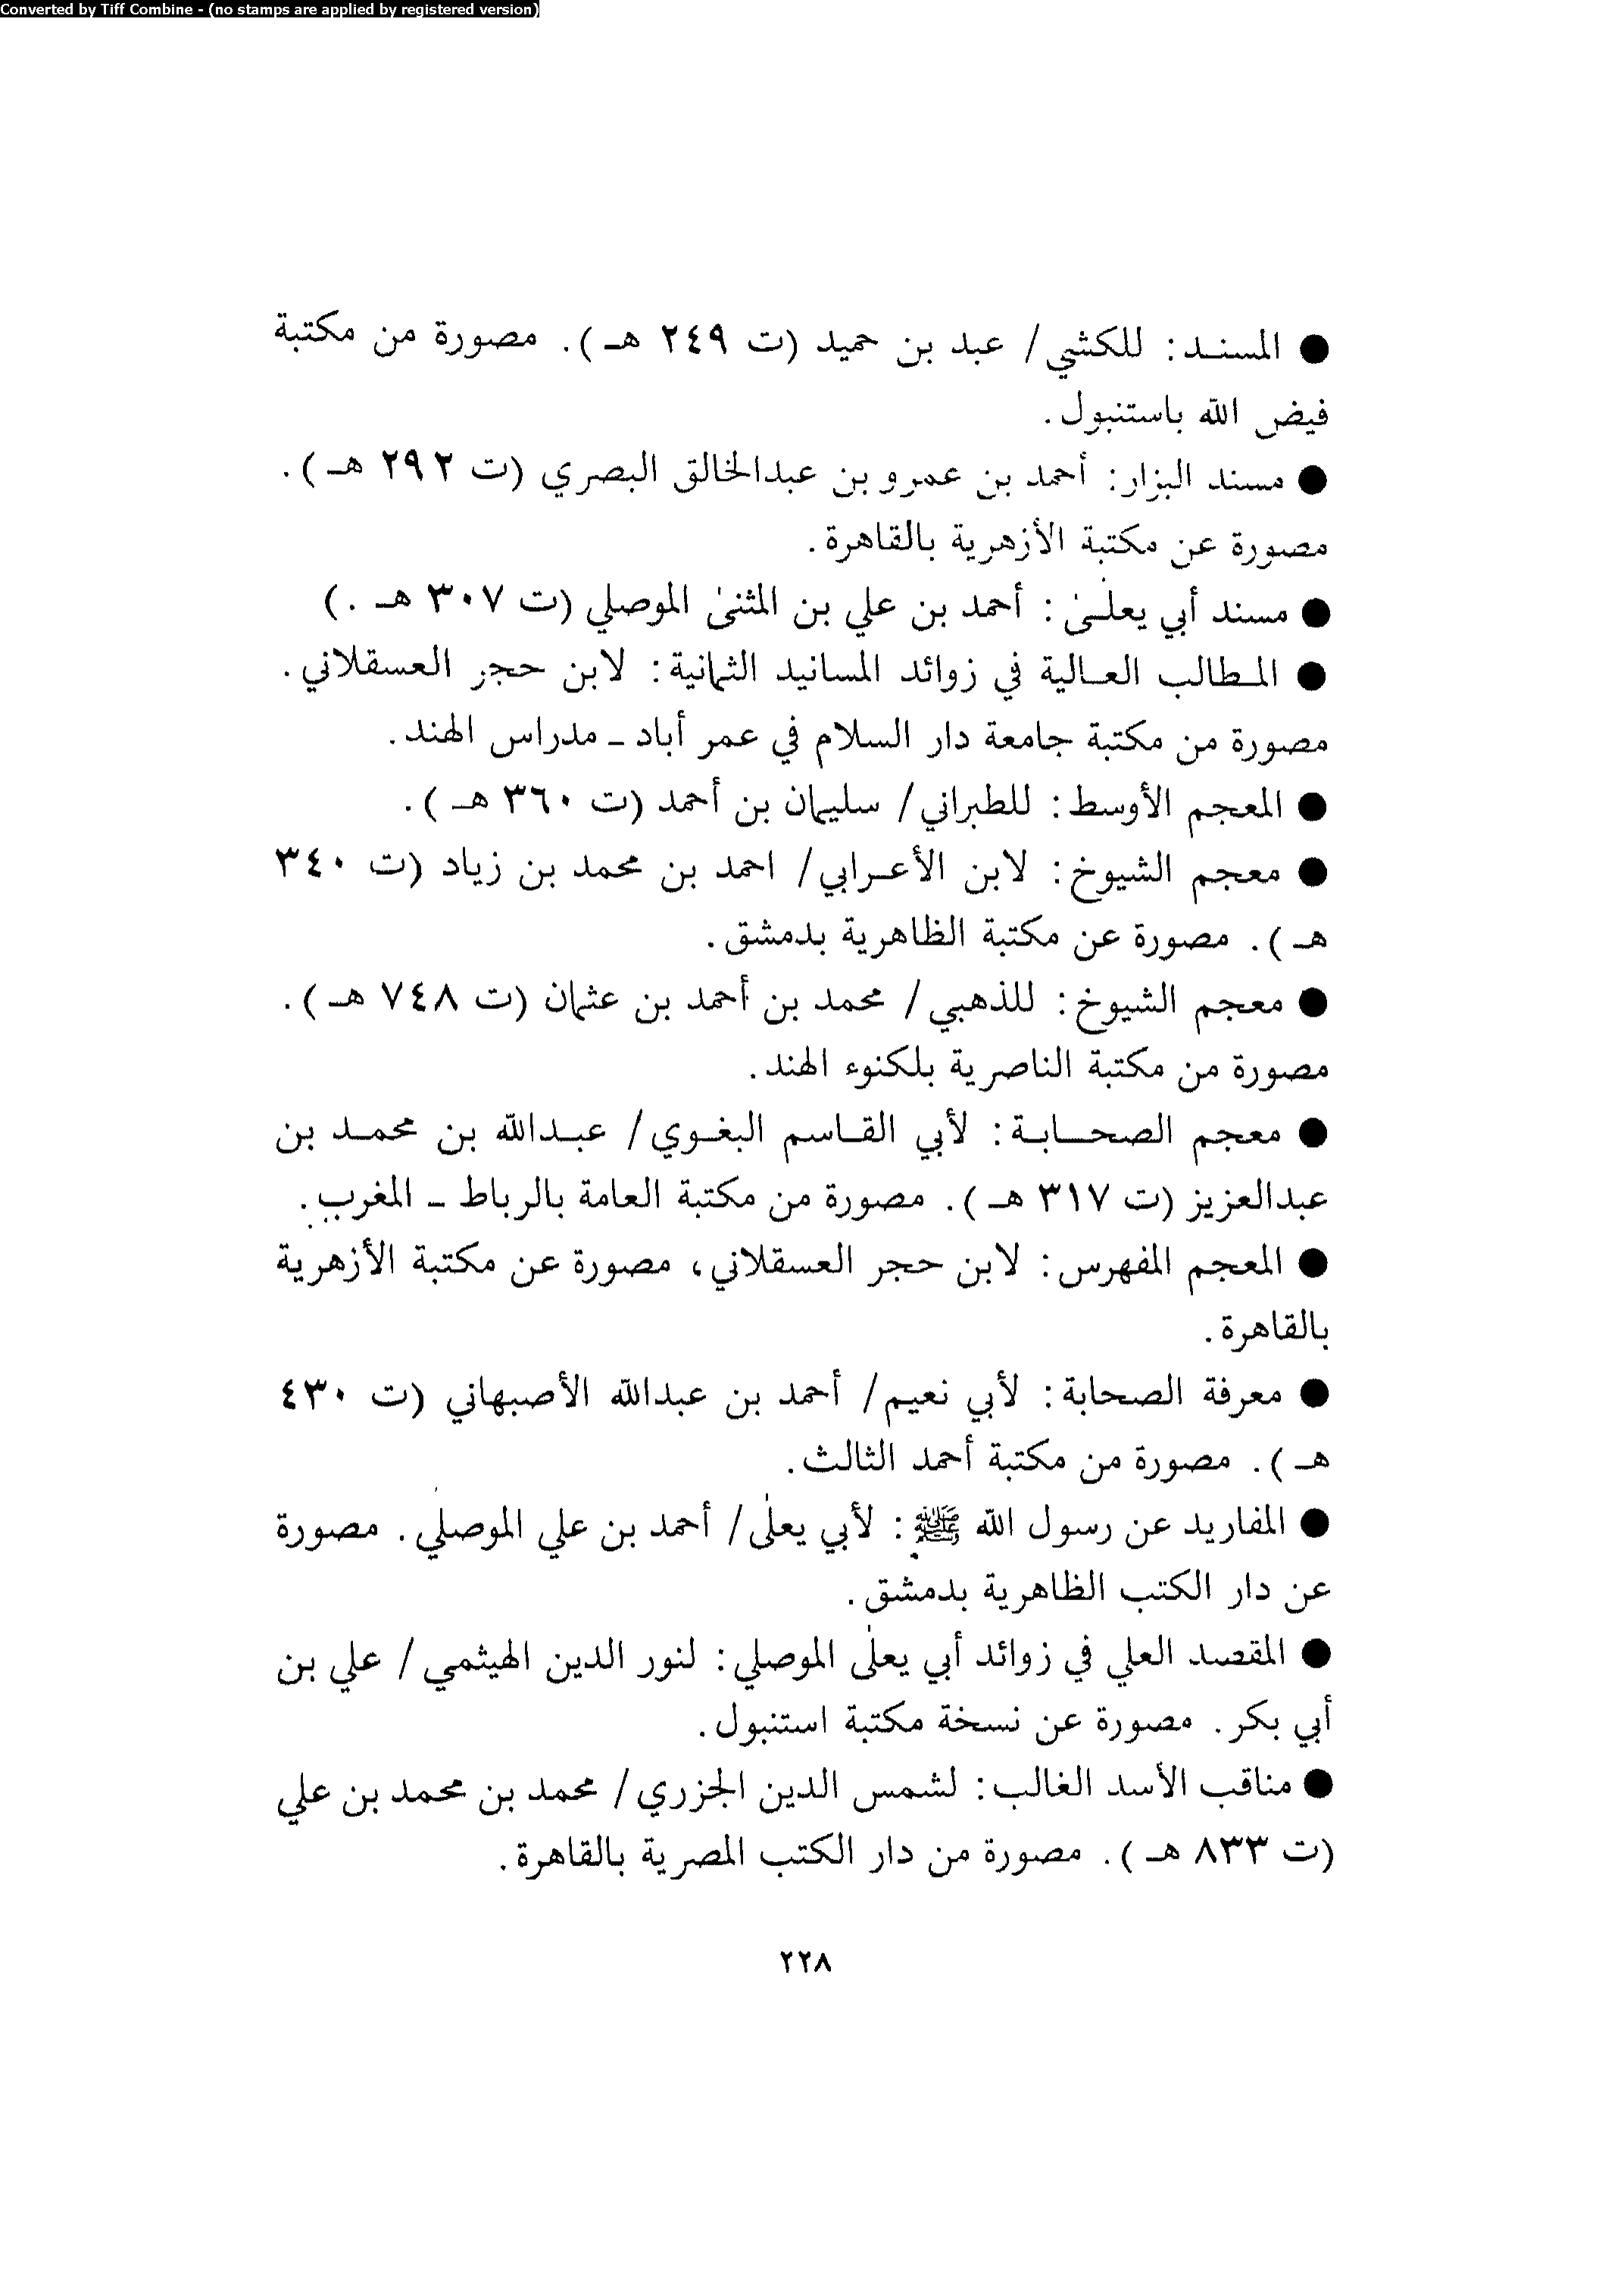 Converted by Tiff Combine - (no stamps are applied by registered version)
● المسند: للكشي/ عبد بن حميد (ت ٢٤٩ هـ). مصورة من مكتبة
فيض الله باستنبول.
● مسند البزار: أحمد بن عمرو بن عبدالخالق البصري (ت ٢٩٢ هـ).
مصورة عن مكتبة الأزهرية بالقاهرة.
● مسند أبي يعلىٰ: أحمد بن علي بن المثنىٰ الموصلي (ت ٣٠٧ هـ .)
● المطالب العالية في زوائد المسانيد الثمانية: لابن حجر العسقلاني.
مصورة من مكتبة جامعة دار السلام في عمر أباد ـ مدراس الهند.
● المعجم الأوسط: للطبراني/ سليمان بن أحمد (ت ٣٦٠ هـ).
● معجم الشيوخ: لابن الأعرابي/ احمد بن محمد بن زياد (ت ٣٤٠
هـ). مصورة عن مكتبة الظاهرية بدمشق.
● معجم الشيوخ: للذهبي/ محمد بن أحمد بن عثمان (ت ٧٤٨ هـ).
مصورة من مكتبة الناصرية بلكنوء الهند.
● معجم الصحابة: لأبي القاسم البغوي/ عبدالله بن محمد بن
عبدالعزيز (ت ٣١٧ هـ). مصورة من مكتبة العامة بالرباط ـ المغرب.
● المعجم المفهرس: لابن حجر العسقلاني، مصورة عن مكتبة الأزهرية
بالقاهرة.
● معرفة الصحابة: لأبي نعيم/ أحمد بن عبدالله الأصبهاني (ت ٤٣٠
هـ). مصورة من مكتبة أحمد الثالث.
● المفاريد عن رسول الله ﷺ: لأبي يعلىٰ/ أحمد بن علي الموصلي. مصورة
عن دار الكتب الظاهرية بدمشق.
● المقصد العلي في زوائد أبي يعلىٰ الموصلي: لنور الدين الهيثمي/ علي بن
أبي بكر. مصورة عن نسخة مكتبة استنبول.
● مناقب الأسد الغالب: لشمس الدين الجزري/ محمد بن محمد بن علي
(ت ٨٣٣ هـ). مصورة من دار الكتب المصرية بالقاهرة.
٢٢٨